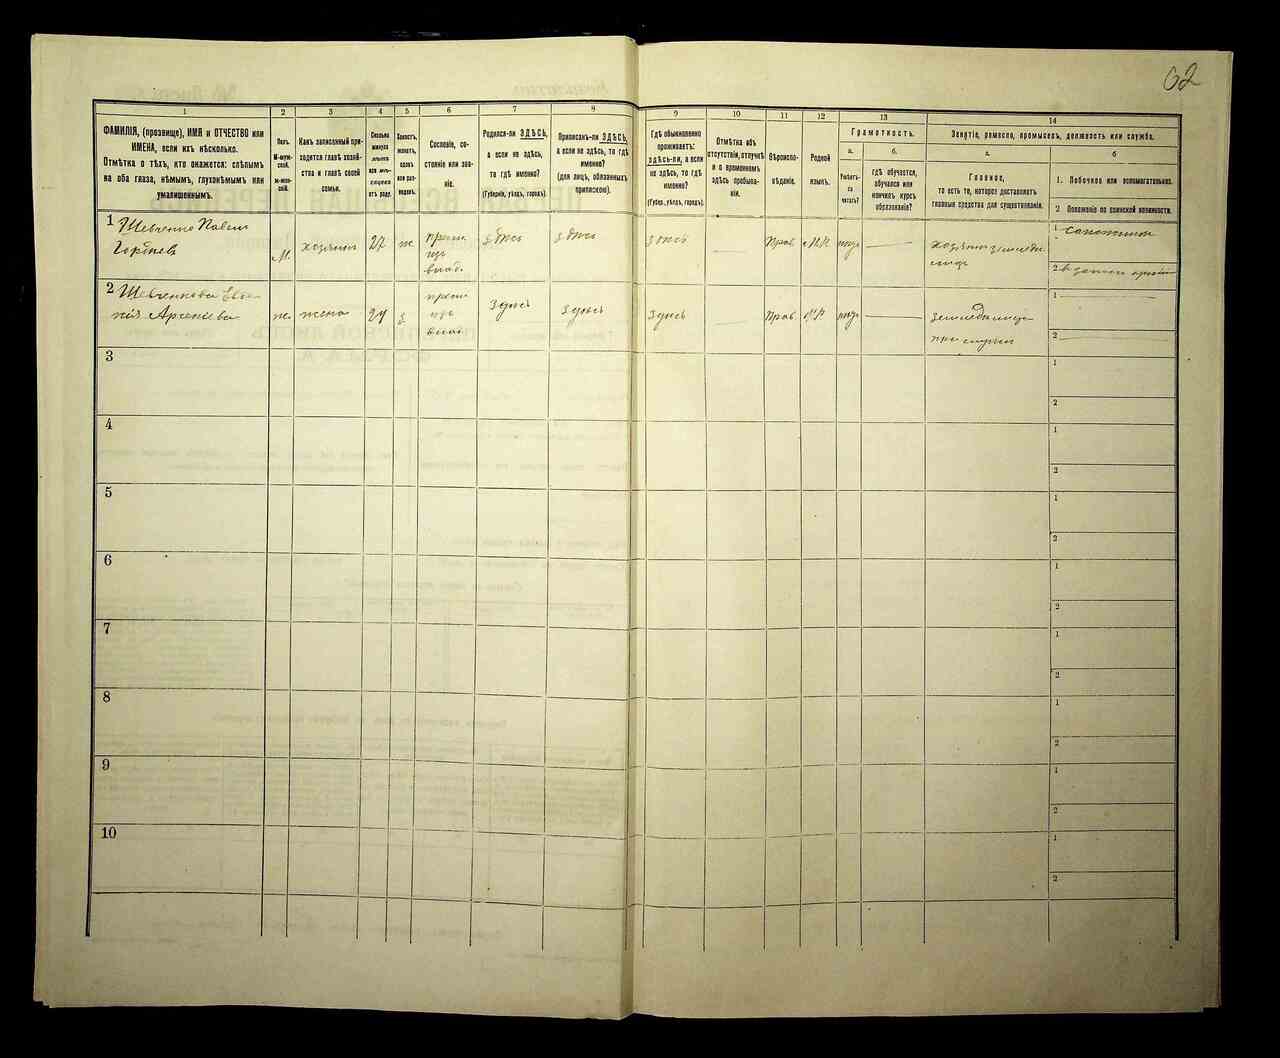 62
1
2
3
4
5
6
7
8
9
10
11
12
13
14
ФАМИЛІЯ, (прозвище), ИМЯ и ОТЧЕСТВО или
ИМЕНА, если ихъ нѣсколько.
Отмѣтка о тѣхъ, кто окажется: слѣпымъ
на оба глаза, нѣмымъ, глухонѣмымъ или
умалишеннымъ.
Полъ.
Какъ записанный при-
ходится главѣ хозяй-
ства и главѣ своей
семьи.
Сколько
минуло
лѣтъ
или мѣ-
сяцевъ
отъ роду.
Холостъ,
женатъ,
вдовъ
или раз-
веденъ.
Сословіе, со-
стояніе или зва-
ніе.
Родился-ли ЗДѢСЬ,
а если не здѣсь,
то гдѣ именно?
(Губернія, уѣздъ, городъ).
Приписанъ-ли ЗДѢСЬ,
а если не здѣсь, то гдѣ
именно?
(для лицъ, обязанныхъ
припискою).
Гдѣ обыкновенно
проживаетъ:
здѣсь-ли, а если
не здѣсь, то гдѣ
именно?
(Губер., уѣздъ, городъ).
Отмѣтка объ
отсутствіи, отлучкѣ
и о временномъ
здѣсь пребыва-
ніи.
Вѣроиспо-
вѣданіе.
Родной
языкъ.
Грамотность.
а.
б.
Умѣетъ-
ли
читать?
гдѣ обучается,
обучался или
кончилъ курсъ
образованія?
Занятіе, ремесло, промыселъ, должность или служба.
а.
б
Главное,
то есть то, которое доставляетъ
главныя средства для существованія.
1. Побочное или вспомогательное.
2 Положеніе по воинской повинности.
1 Шевченко Павелъ
Гордѣевъ
м.
хозяинъ
27
ж.
здѣсь
здѣсь
здѣсь
Прав.
хозяинъ
1
2
2 Шевченкова
Арсеніева
ж.
жена
з.
здѣсь
здѣсь
здѣсь
Прав.
1
2
3
1
2
4
1
2
5
1
2
6
1
2
7
1
2
8
1
2
9
1
2
10
1
2